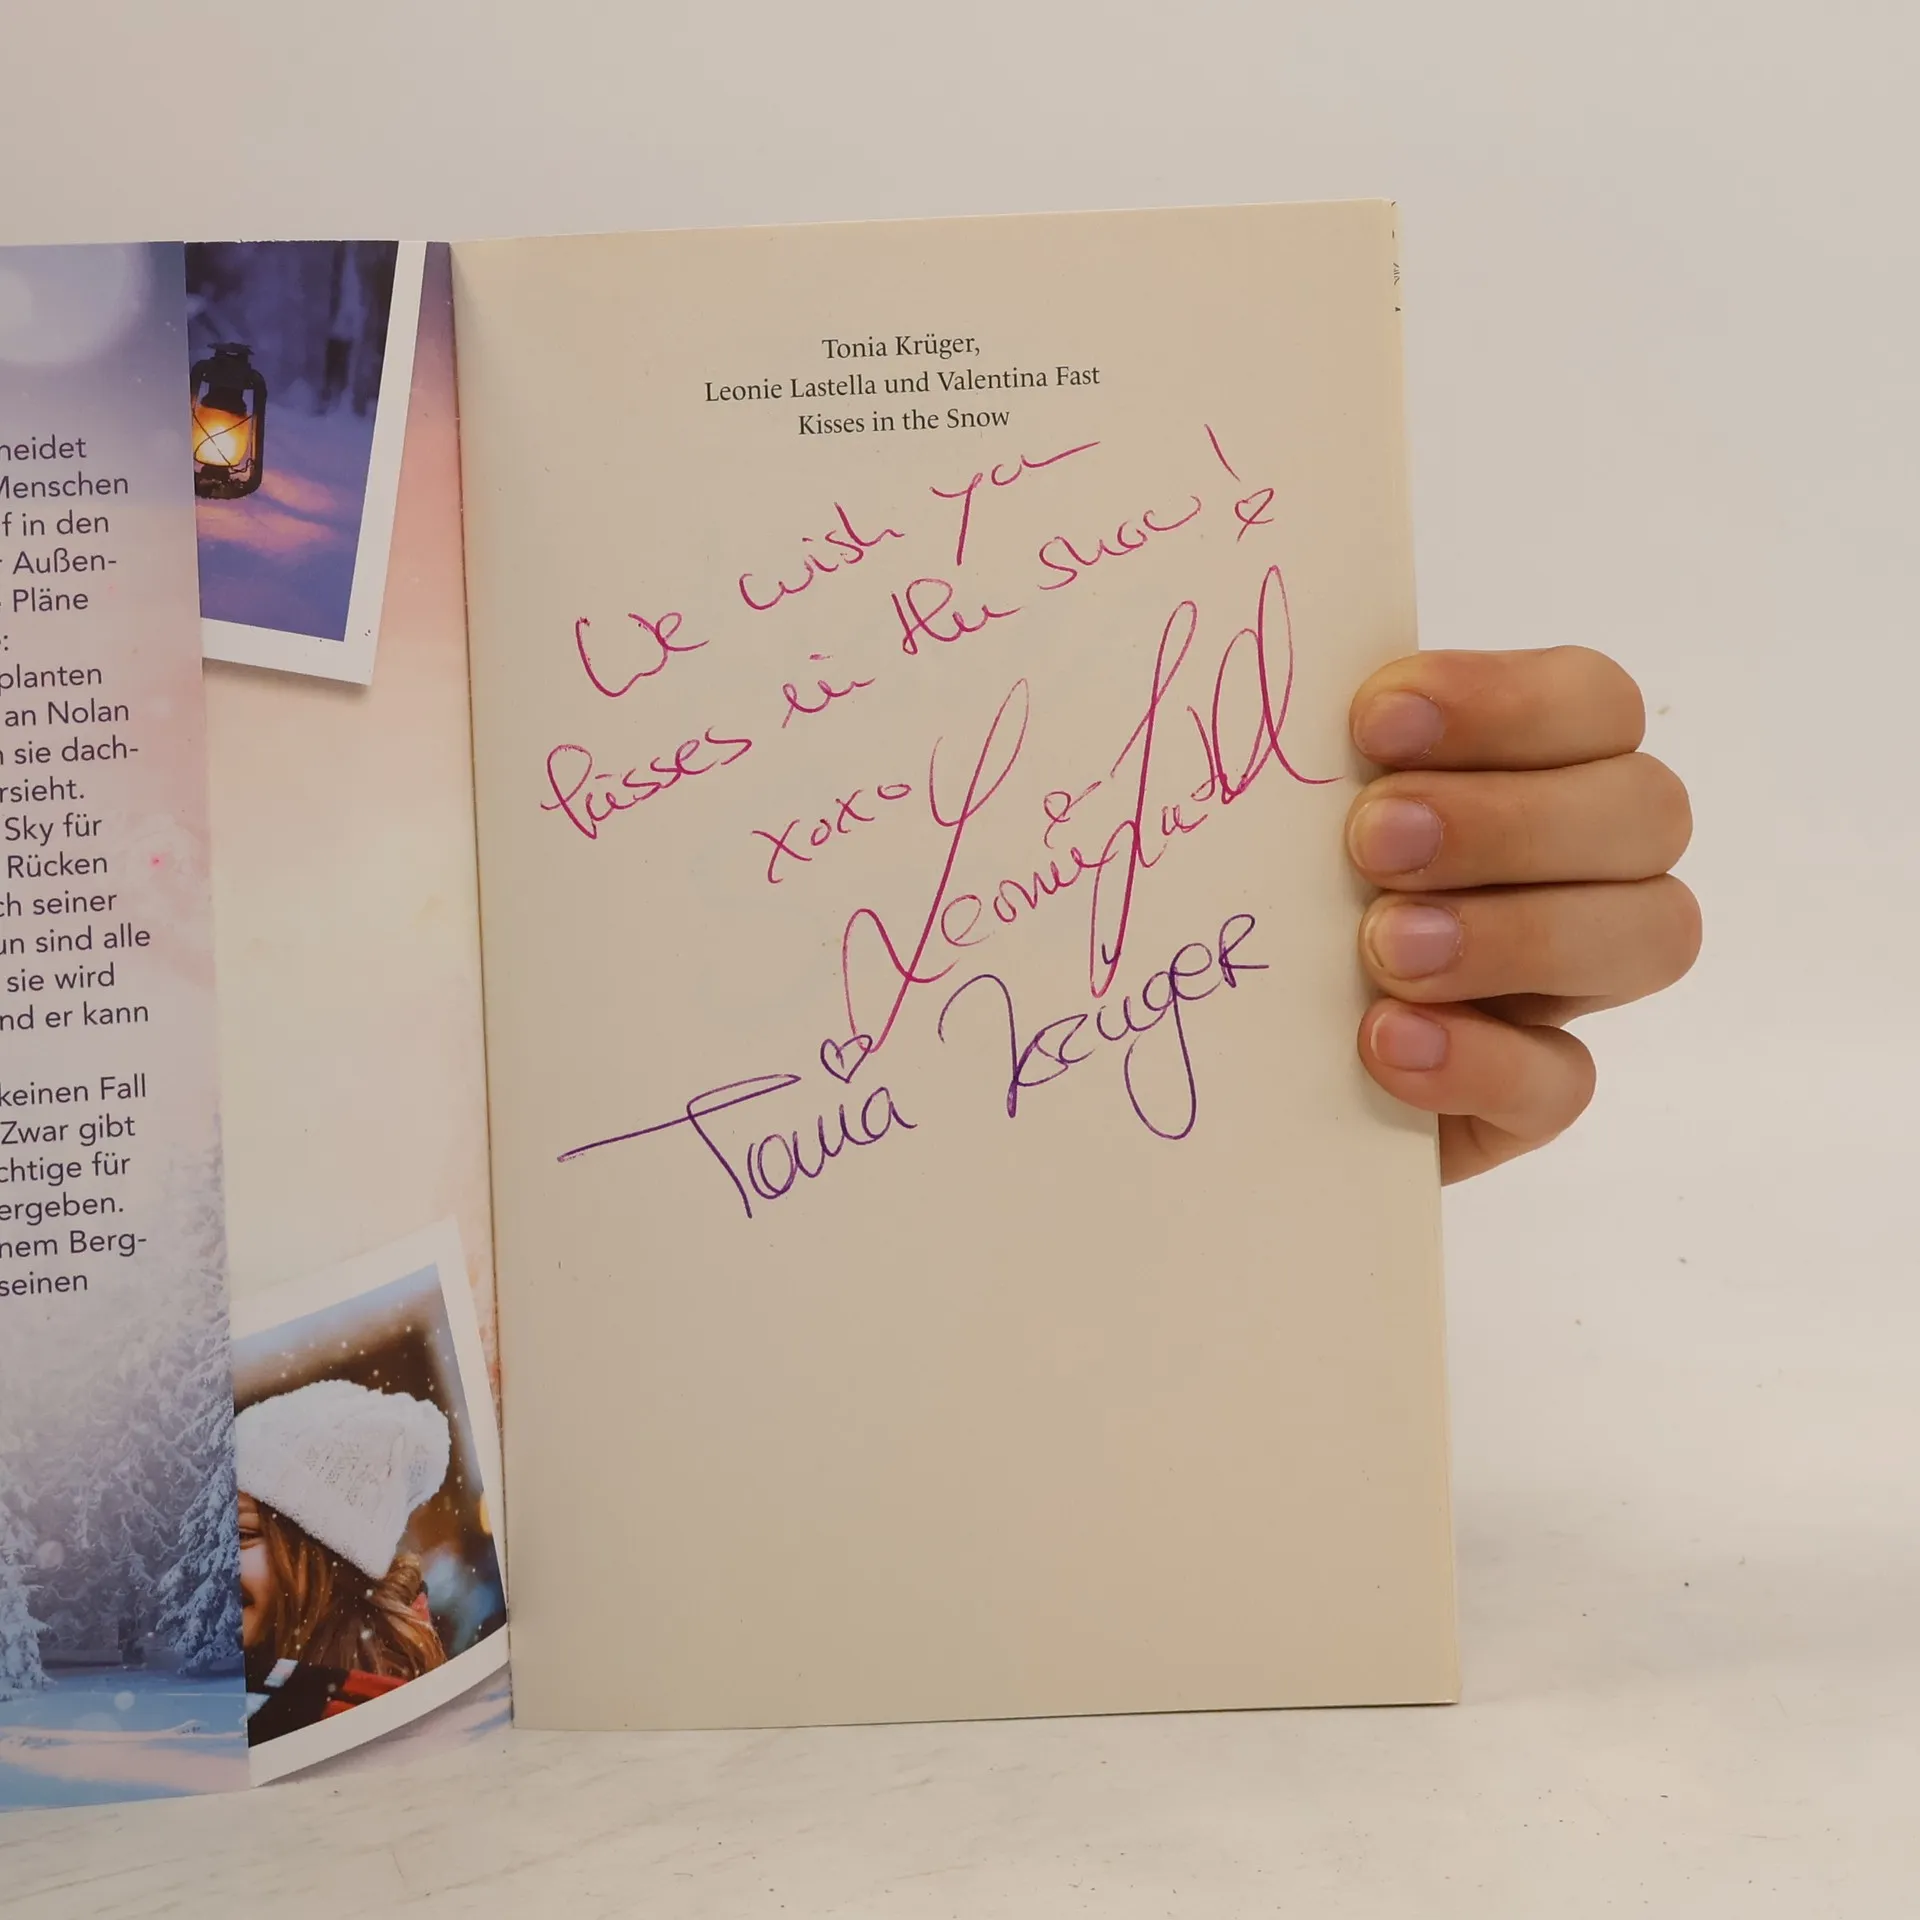 heidet
Menschen
f in den
r Außen-
Pläne
:
planten
an Nolan
sie dach-
rsieht.
Sky für
Rücken
ch seiner
un sind alle
sie wird
nd er kann
keinen Fall
Zwar gibt
chtige für
ergeben.
nem Berg-
seinen
Tonia Krüger,
Leonie Lastella und Valentina Fast
Kisses in the Snow
We wish you
kisses in the snow!
xoxo
Leonie Lastella
Tonia Krüger